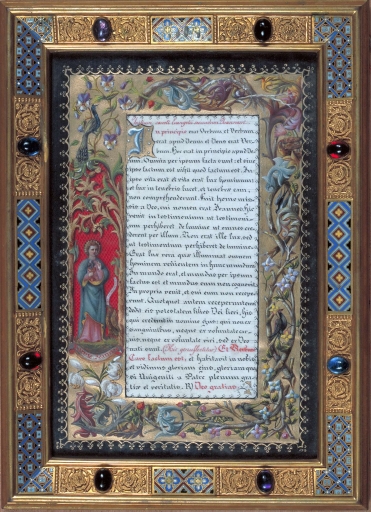 In principio erat Verbum et Verbum
erat apud Deum et Deus erat Ver-
bum. Hoc erat in principio apud De-
um. Omnia per ipsum facta sunt: et sine
ipso factum est nihil quod factum est. In
ipso vita erat et vita erat lux hominum:
et lux in tenebris lucet, et tenebræ eam
non comprehenderunt. Fuit homo missus
a Deo, cui nomen erat Joannes. Hic
venit in testimonium ut testimoni-
um perhiberet de lumine ut omnes cre-
derent per illum. Non erat ille lux, sed
ut testimonium perhiberet de lumine.
Erat lux vera quæ illuminat omnem
hominem venientem in hunc mundum.
In mundo erat, et mundus per ipsum
factus est et mundus eum non cognovit.
In propria venit, et sui eum non recepe-
runt. Quotquot autem receperunt eum
dedit eis potestatem filios Dei fieri, his
qui credunt in nomine ejus: qui non ex
sanguinibus, neque ex voluntate car-
nis, neque ex voluntate viri, sed ex Deo
nati sunt. (Hic genuflectitur) Et Verbum
Caro factum est, et habitavit in nobis
et vidimus gloriam ejus, gloriam qua-
si Unigeniti a Patre plenum gra-
tiæ et veritatis. R) Deo gratias.